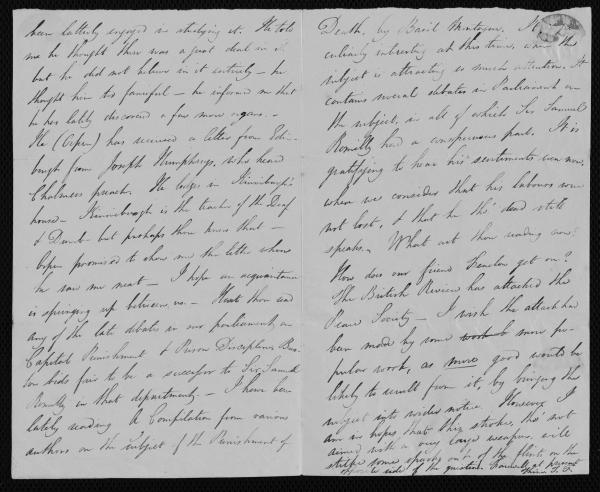 been latterly engaged in studying it. He told
me he thought there was a great deal in it
but he did not believe in it entirely – he
thought him too fanciful – he informed me that
he has lately discovered a few more organs. –
He (Orpen) has received a letter from Edin-
burgh from Joseph Humphreys, who heard
Chalmers preach. He lodges in Kinniburgh's
house – Kinniburgh is the teacher of the Deaf
& Dumb – but perhaps thou knew that –
Orpen promised to show me the letter when
he saw me next – I hope an acquaintance
is springing up between us. – Hast thou read
any of the late debates in our parliament, on
Capital Punishment & Prison Discipline. Bux-
ton bids fair to be a successor to Sir Samuel
Romilly in that department. – I have been
lately reading A Compilation from various
authors on the subject of the Punishment of
Death, by Basil Montague. It
culiarly interesting at this time, when the
subject is attracting so much attention. It
contains several debates in Parliament on
the subject, in all of which Sir Samuel
Romilly had a conspicuous part. It is
gratifying to hear his sentiments even now,
when we consider that his labours were
not lost, & that he tho' dead still
speaks. – What art thou reading now?
How does our friend Fenelon get on?
The British Review has attacked the
Peace Society – I wish the attack had
been made by some work more po-
pular work, as more good would be
likely to result from it, by bringing the
subject into wider notice. However I
am in hopes that this stroke, tho' not
aimed with a very large weapon, will
strike some sparks out of the flints on the
opposite side of the question. Farewell at present
thine